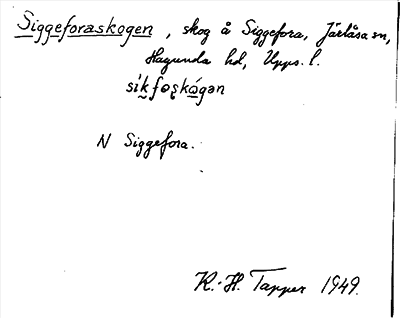 Siggeforaskogen, skog å Siggefora, Järlåsa sn,
Hagunda hd, Upps. l.
sikfoʂkógən
N Siggefora.
K.-H. Tapper 1949.